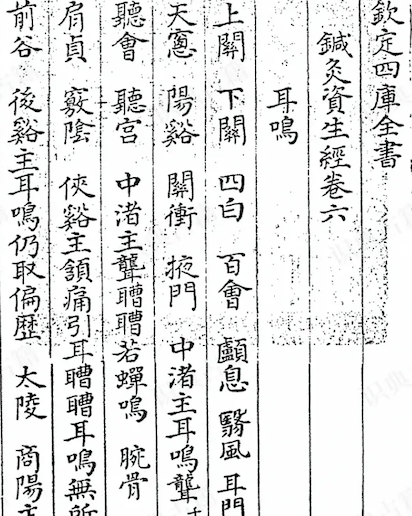 欽定四庫全書
鍼灸資生經卷六
耳鳴
上關 下關 四白 百會 顱息 翳風 耳門
天窻 陽谿 關衝 掖門 中渚主耳鳴聾
聽會 聽宮 中渚主聾嘈嘈若蟬鳴 腕骨
肩貞 竅陰 俠谿主頷痛引耳嘈嘈耳鳴無所
前谷 後谿主耳鳴仍取偏歷 太陵 商陽主